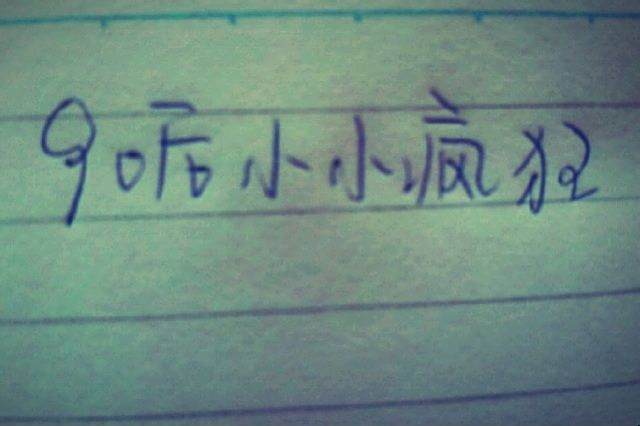 90后小小疯狂